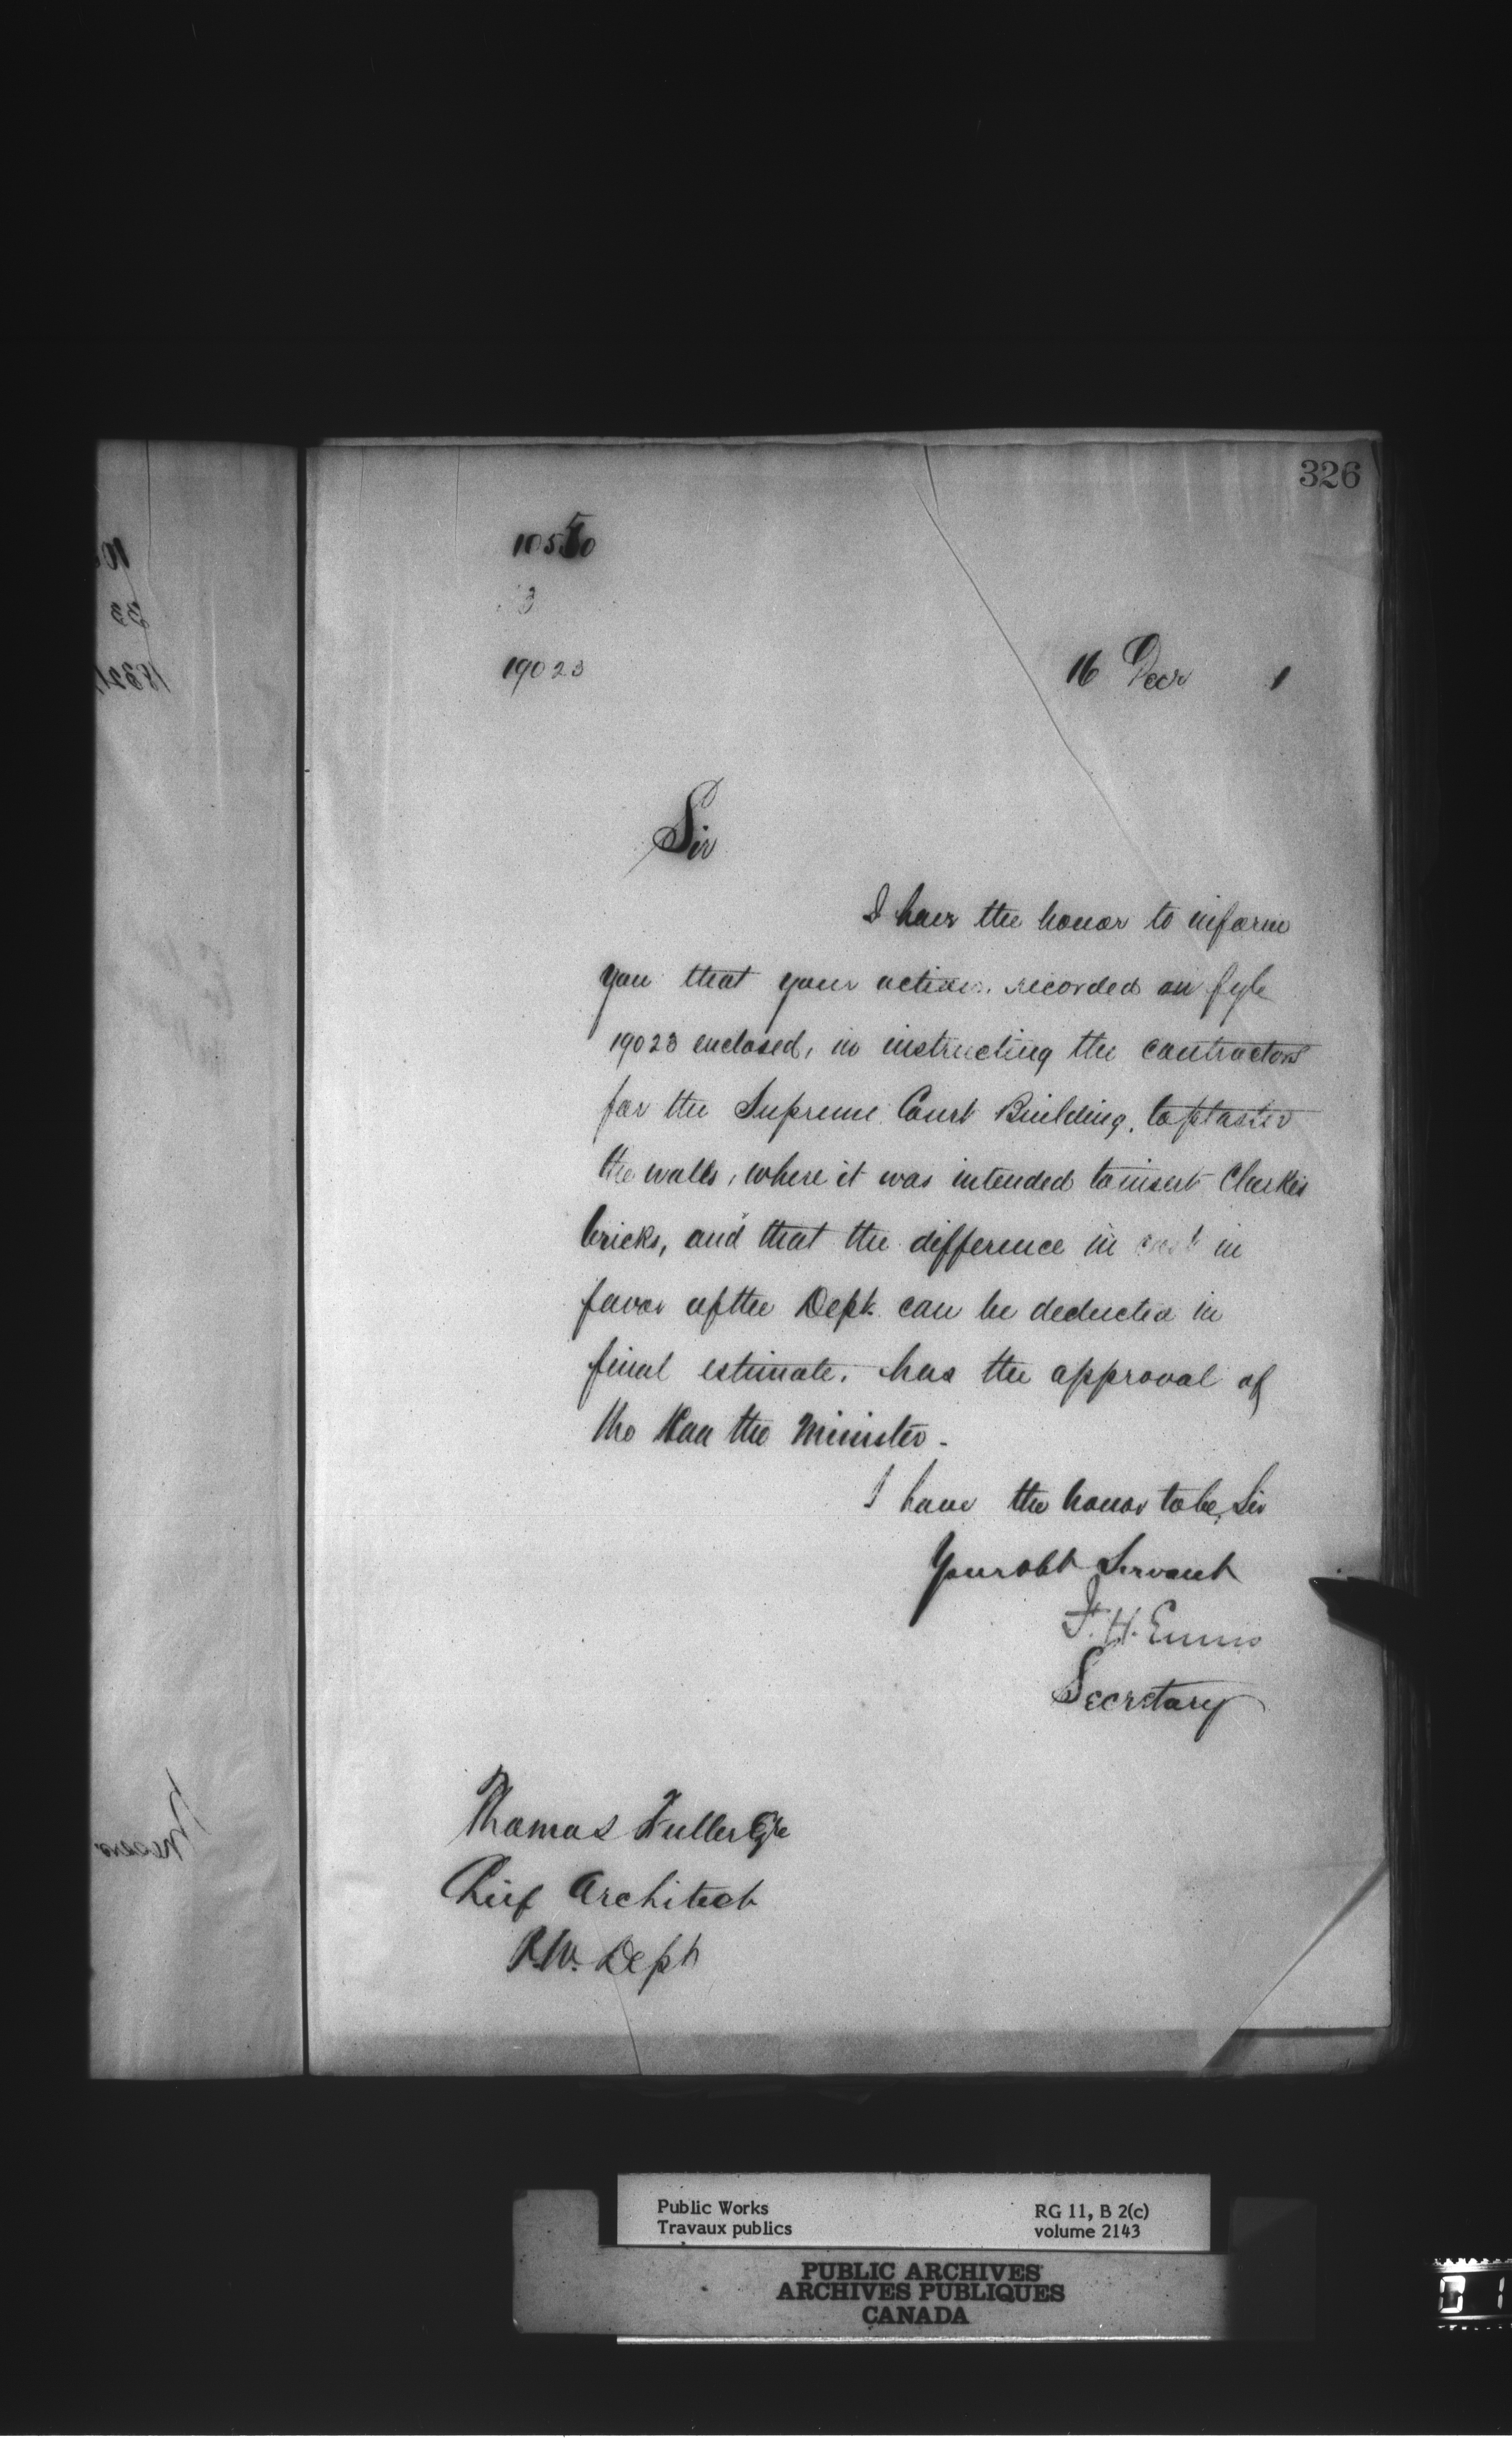 326
10550
3
19023
16 Decr 1
Sir
I have the honor to inform
you that your action, recorded on fyle
19023 enclosed, in instructing the contractors
for the Supreme Court Building, to plaster
the walls, where it was intended to insert Clarke's
bricks, and that the difference in cost in
favor of the Dept. can be deducted in
final estimate. has the approval of
the Hon the Minister.
I have the honor to be, Sir
Your obt Servant
F. H. Ennis
Secretary
Thomas Fuller Esqre
Chief Architect
P.W. Dept
Public Works
Travaux publics
RG 11, B 2(c)
volume 2143
PUBLIC ARCHIVES
ARCHIVES PUBLIQUES
CANADA